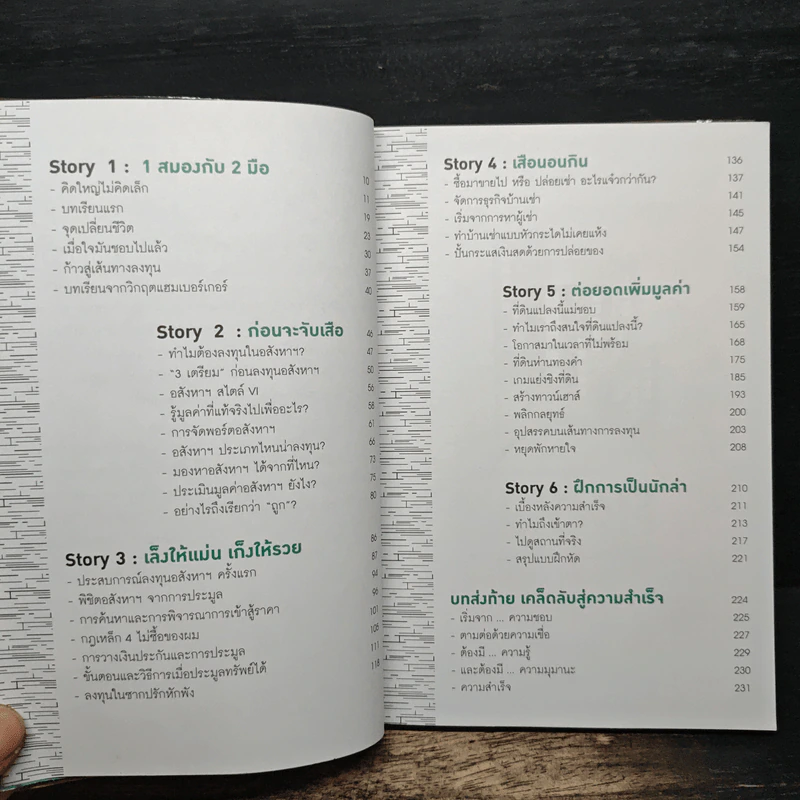 Story 1 : 1 สมองกับ 2 มือ 10
- คิดใหญ่ไม่คิดเล็ก 11
- บทเรียนแรก 19
- จุดเปลี่ยนชีวิต 23
- เมื่อใจมันชอบไปแล้ว 30
- ก้าวสู่เส้นทางลงทุน 37
- บทเรียนจากวิกฤตแฮมเบอร์เกอร์ 40
Story 2 : ก่อนจะจับเสือ 46
- ทำไมต้องลงทุนในอสังหาฯ? 47
- "3 เตรียม" ก่อนลงทุนอสังหาฯ 50
- อสังหาฯ สไตล์ VI 56
- รู้มูลค่าที่แท้จริงไปเพื่ออะไร? 58
- การจัดพอร์ตอสังหาฯ 61
- อสังหาฯ ประเภทไหนน่าลงทุน? 66
- มองหาอสังหาฯ ได้จากที่ไหน? 73
- ประเมินมูลค่าอสังหาฯ ยังไง? 75
- อย่างไรถึงเรียกว่า "ถูก"? 80
Story 3 : เล็งให้แม่น เก็งให้รวย 86
- ประสบการณ์ลงทุนอสังหาฯ ครั้งแรก 87
- พิชิตอสังหาฯ จากการประมูล 94
- การค้นหาและการพิจารณาการเข้าสู้ราคา 96
- กฎเหล็ก 4 ไม่ซื้อของผม 101
- การวางเงินประกันและการประมูล 105
- ขั้นตอนและวิธีการเมื่อประมูลทรัพย์ได้ 111
- ลงทุนในซากปรักหักพัง 118
Story 4 : เสือนอนกิน 136
- ซื้อมาขายไป หรือ ปล่อยเช่า อะไรแจ๋วกว่ากัน? 137
- จัดการธุรกิจบ้านเช่า 141
- เริ่มจากการหาผู้เช่า 145
- ทำบ้านเช่าแบบหัวกระไดไม่เคยแห้ง 147
- ปั้นกระแสเงินสดด้วยการปล่อยของ 154
Story 5 : ต่อยอดเพิ่มมูลค่า 158
- ที่ดินแปลงนี้แม่ชอบ 159
- ทำไมเราถึงสนใจที่ดินแปลงนี้? 165
- โอกาสมาในเวลาที่ไม่พร้อม 168
- ที่ดินห่านทองคำ 175
- เกมแย่งชิงที่ดิน 185
- สร้างทาวน์เฮาส์ 193
- พลิกกลยุทธ์ 200
- อุปสรรคบนเส้นทางการลงทุน 203
- หยุดพักหายใจ 208
Story 6 : ฝึกการเป็นนักล่า 210
- เบื้องหลังความสำเร็จ 211
- ทำไมถึงเข้าตา? 213
- ไปดูสถานที่จริง 217
- สรุปแบบฝึกหัด 221
บทส่งท้าย เคล็ดลับสู่ความสำเร็จ 224
- เริ่มจาก ... ความชอบ 225
- ตามต่อด้วยความเชื่อ 227
- ต้องมี ... ความรู้ 229
- และต้องมี ... ความมุมานะ 230
- ความสำเร็จ 231